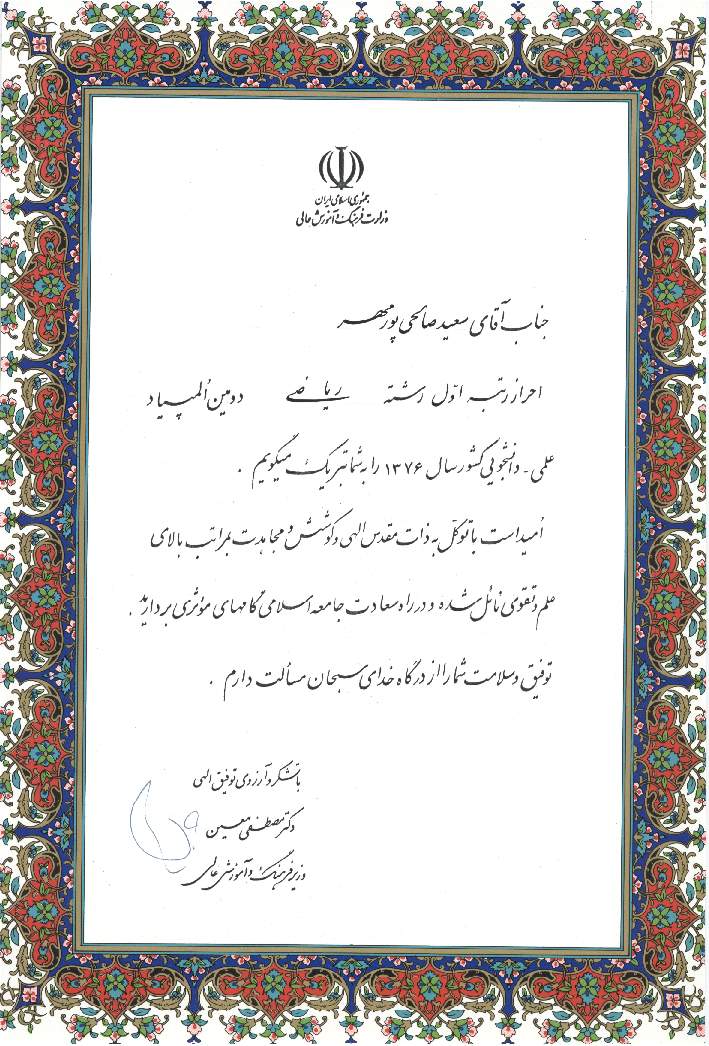 جمهوری اسلامی ایران
وزارت فرهنگ و آموزش عالی
جناب آقای سعید صالحی پور مهر
احراز رتبه اوّل رشته ریاضی دومین اُلمپیاد
علمی - دانشجویی کشور سال ۱۳۷۶ را به شما تبریک میگویم .
اُمید است با توکّل به ذات مقدس الهی و کوشش و مجاهدت بمراتب بالای
علم و تقوی نائل شده و در راه سعادت جامعه اسلامی گامهای مؤثری بردارید .
توفیق و سلامت شما را از درگاه خدای سبحان مسألت دارم .
با تشکر و آرزوی توفیق الهی
دکتر مصطفی معین
وزیر فرهنگ و آموزش عالی